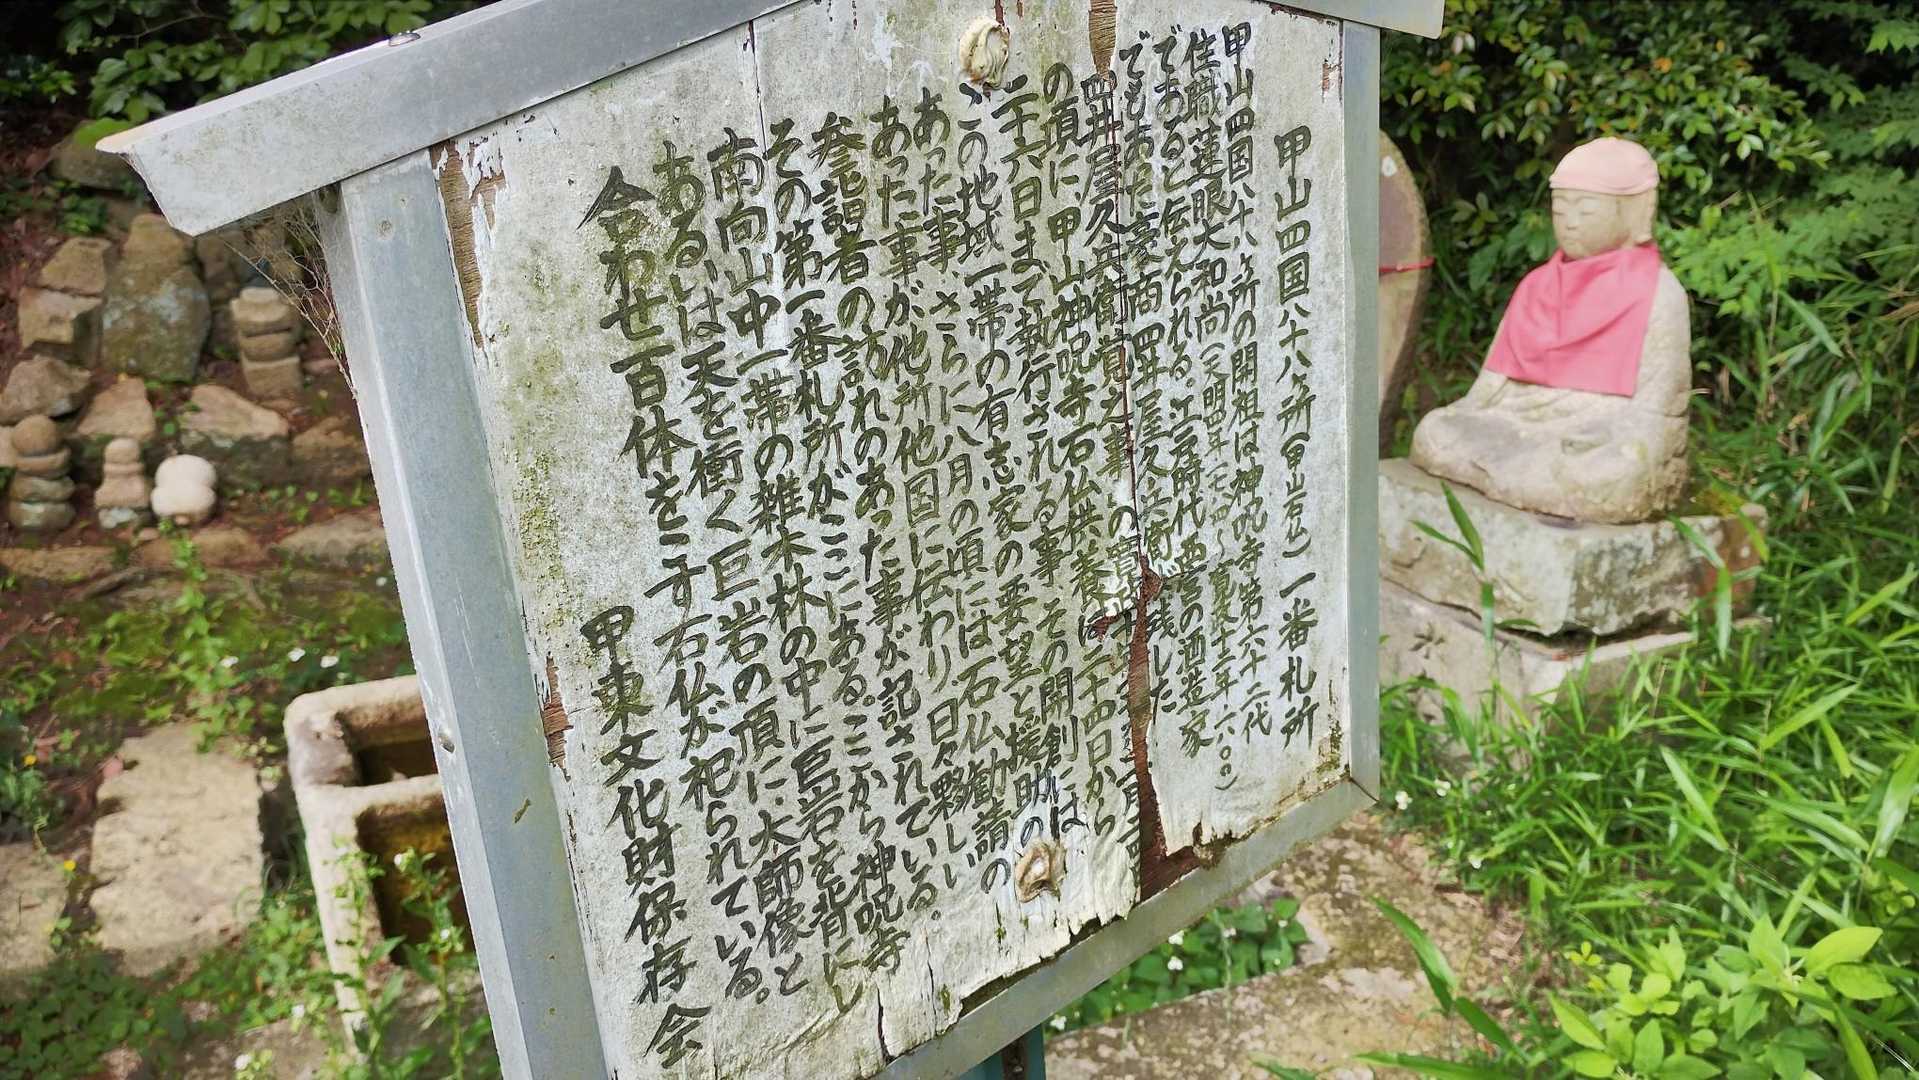 甲山四国八十八ヶ所（甲山石仏）一番札所
甲山四国八十八ヶ所の開祖は神呪寺第六十二代
住職蓮眼大和尚（天明四年一七八四～寛政十二年一八〇〇）
であると伝えられる。江戸時代西宮の酒造家
でもあった豪商四井屋久兵衛 残した
四井屋久兵衛 覚之事 の
の頃に甲山神呪寺石仏供養は二十四日から
二十六日まで執行される事 その開創には
この地域一帯の有志家の要望と援助の
あった事、さらに八月の頃には石仏勧請の
あった事が他所他国に伝わり日々夥しい
参詣者の訪れのあった事が記されている。
その第一番札所がここにある。ここから神呪寺
南向山中一帯の雑木林の中に巨岩を背にし
あるいは天を衝く巨岩の頂に、大師像と
合わせ百体をこす石仏が祀られている。
甲東文化財保存会